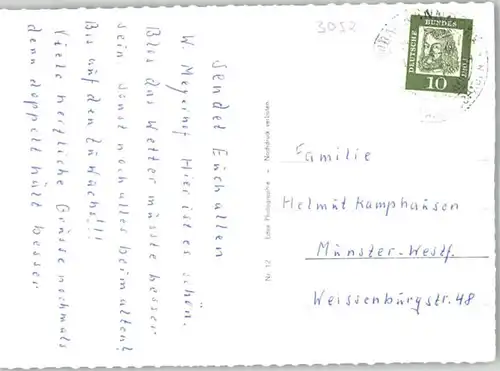 sendet Euch allen
W. Meyerhof. Hier ist es schön.
Blos das Wetter müsste besser
sein sonst noch alles beim alten!
Bis auf den Zuwachs!!!
Viele herzliche Grüsse nochmals
denn doppelt hält besser
3032
DEUTSCHE BUNDESPOST
10
Nr. 12 Echte Photographie - Nachdruck verboten
Familie
Helmut Kamphausen
Münster-Westf.
Weissenburgstr. 48